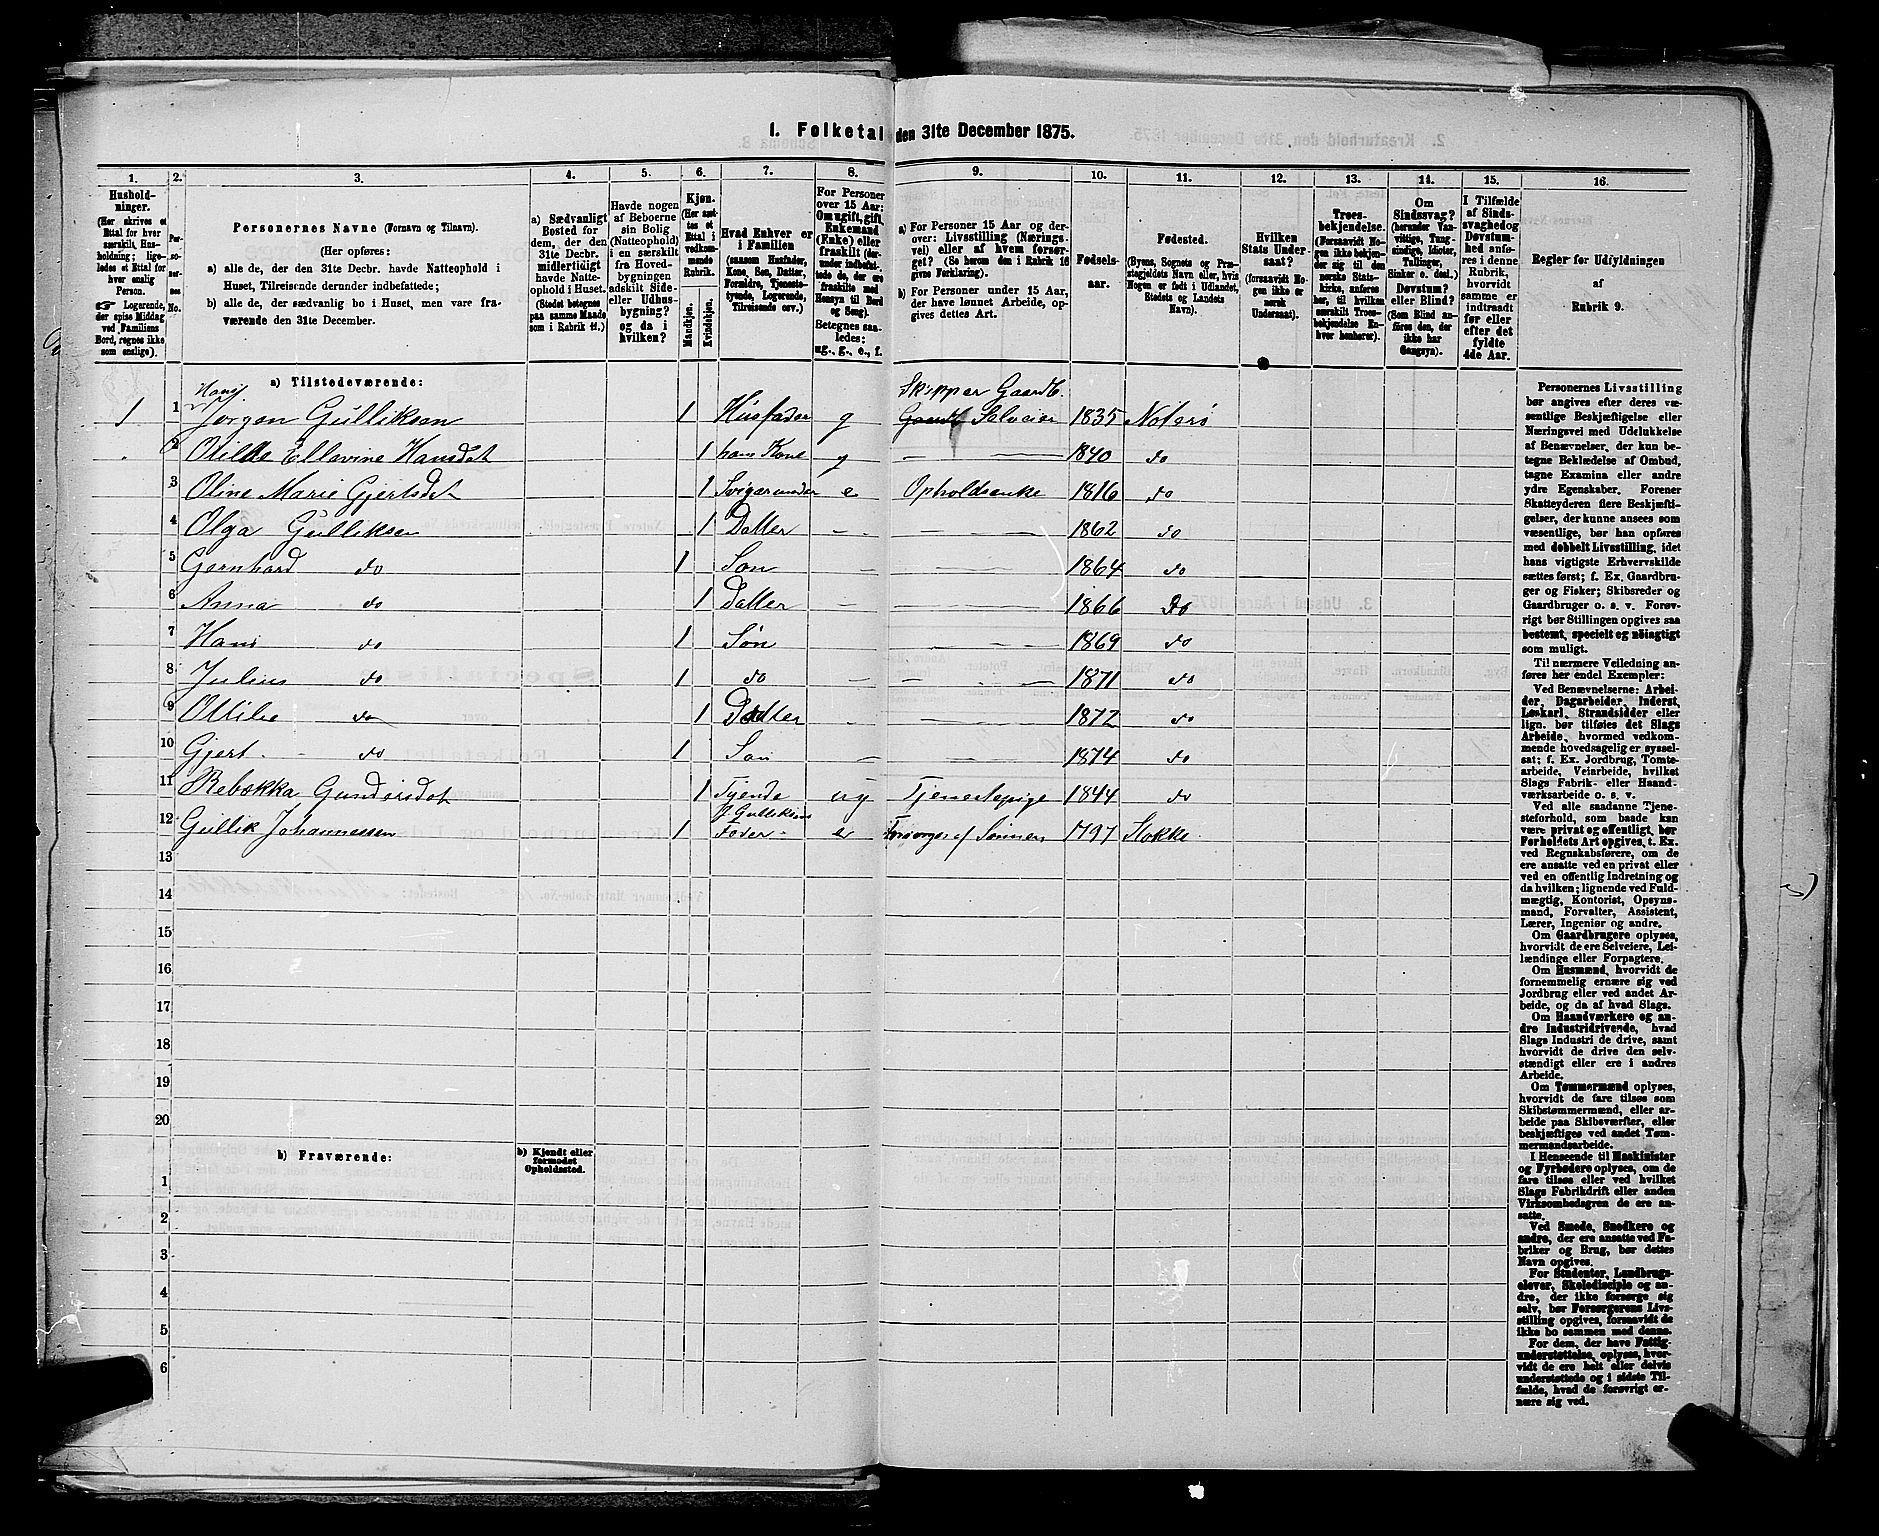 1. Folketal den 31te December 1875.
1. Husholdninger. (Her skrives et Ettal for hver særskilt Husholdning; ligeledes et Ettal for hver enslig Person. Logerende, der spise Middag ved Familiens Bord, regnes ikke som enslige).
2. Personernes No.
3. Personernes Navne (Fornavn og Tilnavn).
(Her opføres:
a) alle de, der den 31te Decbr. havde Natteophold i Huset, Tilreisende derunder indbefattede;
b) alle de, der sædvanlig bo i Huset, men vare fraværende den 31te December.
4. a) Sædvanligt Bosted for dem, der den 31te Decbr. midlertidigt havde Natteophold i Huset. (Stedet betegnes paa samme Maade som i Rubrik 11.)
5. Havde nogen af Beboerne sin Bolig (Natteophold) i en særskilt fra Hovedbygningen adskilt Side- eller Udhusbygning? og da i hvilken?
6. Kjøn. (Her sættes et Ettal i vedkommende Rubrik.
Mandkjøn. Kvindekjøn.
7. Hvad Enhver er i Familien (saasom Husfader, Kone, Søn, Datter, Forældre, Tjenestetyende, Logerende, Tilreisende osv.)
8. For Personer over 15 Aar: Om ugift, gift, Enkemand (Enke) eller fraskilt (derunder indbefattede de, der ere fraskilte med Hensyn til Bord og Seng). Betegnes saaledes: ug., g., e., f.
9. a) For Personer 15 Aar og derover: Livsstilling (Næringsvei) eller af hvem forsørget? (Se herom den i Rubrik 16 givne Forklaring).
b) For Personer under 15 Aar, der have lønnet Arbeide, opgives dettes Art.
10. Fødselsaar.
11. Fødested. (Byens, Sognets og Præstegjeldets Navn eller, hvis Nogen er født i Udlandet, Stedets og Landets Navn).
12. Hvilken Stats Undersaat? (forsaavidt Nogen ikke er norsk Undersaat).
13. Troesbekjendelse. (Forsaavidt Nogen ikke bekjender sig til den norske Statskirke, anføres her, til hvilken særskilt Troesbekjendelse Enhver henhører).
14. Om Sindssvag? (herunder Vanvittige, Tungsindige, Idioter, Tullinger, Sinker o. desl.) Døvstum? eller Blind? (Som Blind anføres den, der ikke har Gangsyn).
15. I Tilfælde af Sindssvaghed og Døvstumhed anføres i denne Rubrik, hvorvidt samme er indtraadt før eller efter det fyldte 4de Aar.
16. Regler for Udfyldningen af Rubrik 9.
a) Tilstedeværende:
Hovig. Skipper Gaardb.
1 1 Jørgen Gulliksen 1 Husfader g Gaardb Selveier 1835 Nøterø
2 Otilde Ellevine Hansdat 1 hans Kone g — 1840 do
3 Oline Marie Gjertsdat 1 Svigermoder e Opholdsenke 1816 do
4 Olga Gulliksen 1 Datter — — 1862 do
5 Gernhard do 1 Søn — — 1864 do
6 Anna do 1 Datter — — 1866 Do
7 Hans do 1 Søn — — 1869 do
8 Julius do 1 do — — 1871 do
9 Ottilie do 1 Datter — — 1872 do
10 Gjert do 1 Søn — — 1874 do
11 Rebekka Gundersdat 1 Tjende ug Tjenestepige 1844 do
J. Gulliksens
12 Gullik Johannessen 1 Fader e Forsørges af Sønnen 1797 Stokke
13
14
15
16
17
18
19
20
b) Fraværende: b) Kjendt eller formodet Opholdssted.
1
2
3
4
5
6
Personernes Livsstilling
bør angives efter deres væ-
sentlige Beskjæftigelse eller
Næringsvei med Udelukkelse
af Benævnelser, der kun be-
tegne Beklædelse af Ombud,
tagne Examina eller andre
ydre Egenskaber. Forener
Skatteyderen flere Beskjæfti-
gelser, der kunne ansees som
væsentlige, bør han opføres
med dobbelt Livsstilling, idet
hans vigtigste Erhvervskilde
sættes først; f. Ex. Gaardbru-
ger og Fisker; Skibsreder og
Gaardbruger o. s. v. Forøv-
rigt bør Stillingen opgives saa
bestemt, specielt og nøiagtigt
som muligt.
Til nærmere Veiledning an-
føres her endel Exempler:
Ved Benævnelserne: Arbei-
der, Dagarbeider, Inderst,
Løskarl, Strandsidder eller
lign. bør tilføies det Slags
Arbeide, hvormed vedkom-
mende hovedsagelig er syssel-
sat; f. Ex. Jordbrug, Tomte-
arbeide, Veiarbeide, hvilket
Slags Fabrik- eller Haand-
værksarbeide o. s. v.
Ved alle saadanne Tjene-
steforhold, som baade kan
være privat og offentligt, bør
Forholdets Art opgives, t. Ex.
ved Regnskabsførere, om de
ere ansatte ved en privat eller
ved en offentlig Indretning og
da hvilken; lignende ved Fuld-
mægtig, Kontorist, Opsyns-
mand, Forvalter, Assistent,
Lærer, Ingeniør og andre.
Om Gaardbrugere oplyses,
hvorvidt de ere Selveiere, Lei-
lændinge eller Forpagtere.
Om Husmænd, hvorvidt de
fornemmelig ernære sig ved
Jordbrug eller ved andet Ar-
beide, og da af hvad Slags.
Om Haandværkere og an-
dre Industridrivende, hvad
Slags Industri de drive, samt
hvorvidt de drive den selv-
stændigt eller ere i andres
Arbeide.
Om Tømmermænd oplyses,
hvorvidt de fare tilsøs som
Skibstømmermænd, eller ar-
beide paa Skibsværfter, eller
beskjæftiges ved andet Tøm-
mermandsarbeide.
I Henseende til Maskinister
og Fyrbødere oplyses, om de
fare tilsøs eller ved hvilket
Slags Fabrikdrift eller anden
Virksomhedsgren de ere an-
satte.
Ved Smede, Snedkere og
andre, der ere ansatte ved Fa-
briker og Brug, bør dettes
Navn opgives.
For Studenter, Landbrugs-
elever, Skoledisciple og an-
dre, der ikke forsørge sig
selv, bør Forsørgerens Livs-
stilling opgives, forsaavidt de
ikke bo sammen med denne.
For dem, der have Fattig-
understøttelse, oplyses, hvor-
vidt de ere helt eller delvis
understøttede og i sidste Til-
fælde, hvad de forøvrigt er-
nære sig ved.